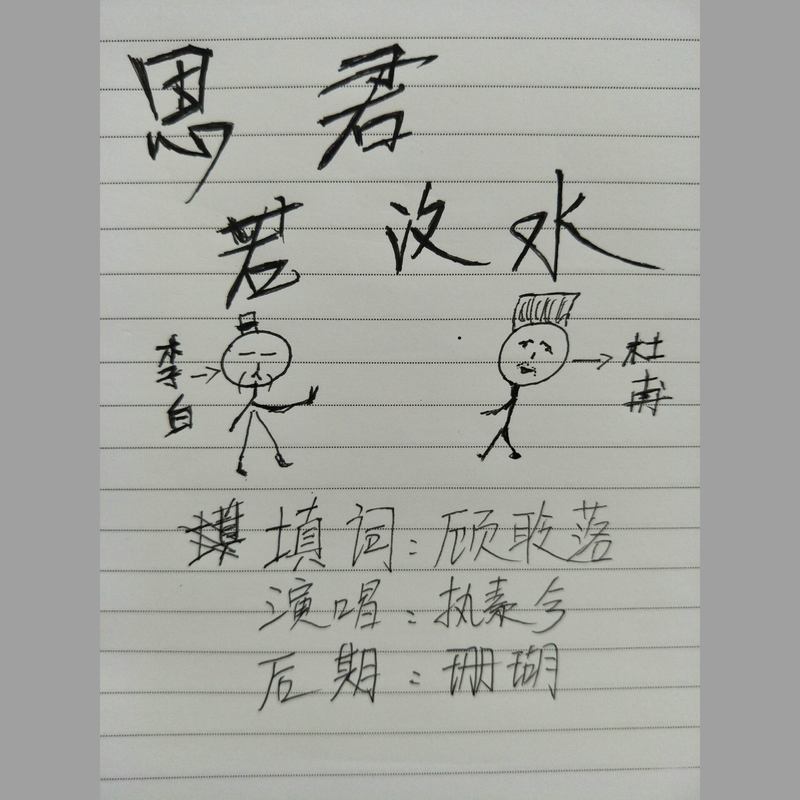 思君
若汶水
李白
杜甫
填词：顾聆落
演唱：执素兮
后期：珊瑚